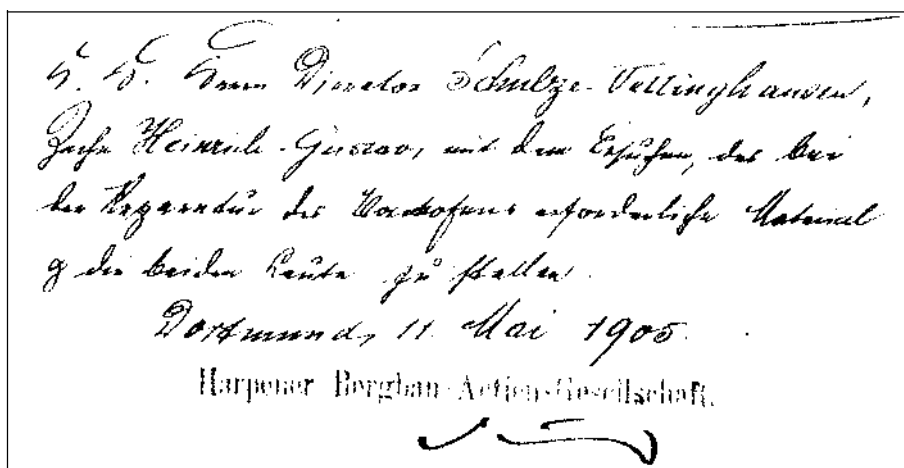 Herrn Director Schulze-Vellinghausen,
Zeche Heinrich-Gustav, mit dem Ersuchen, das bei
der Reparatur des Backofens erforderliche Material
& die beiden Leute zu stellen.
Dortmund, 11. Mai 1905.
Harpener Bergbau-Actien-Gesellschaft.